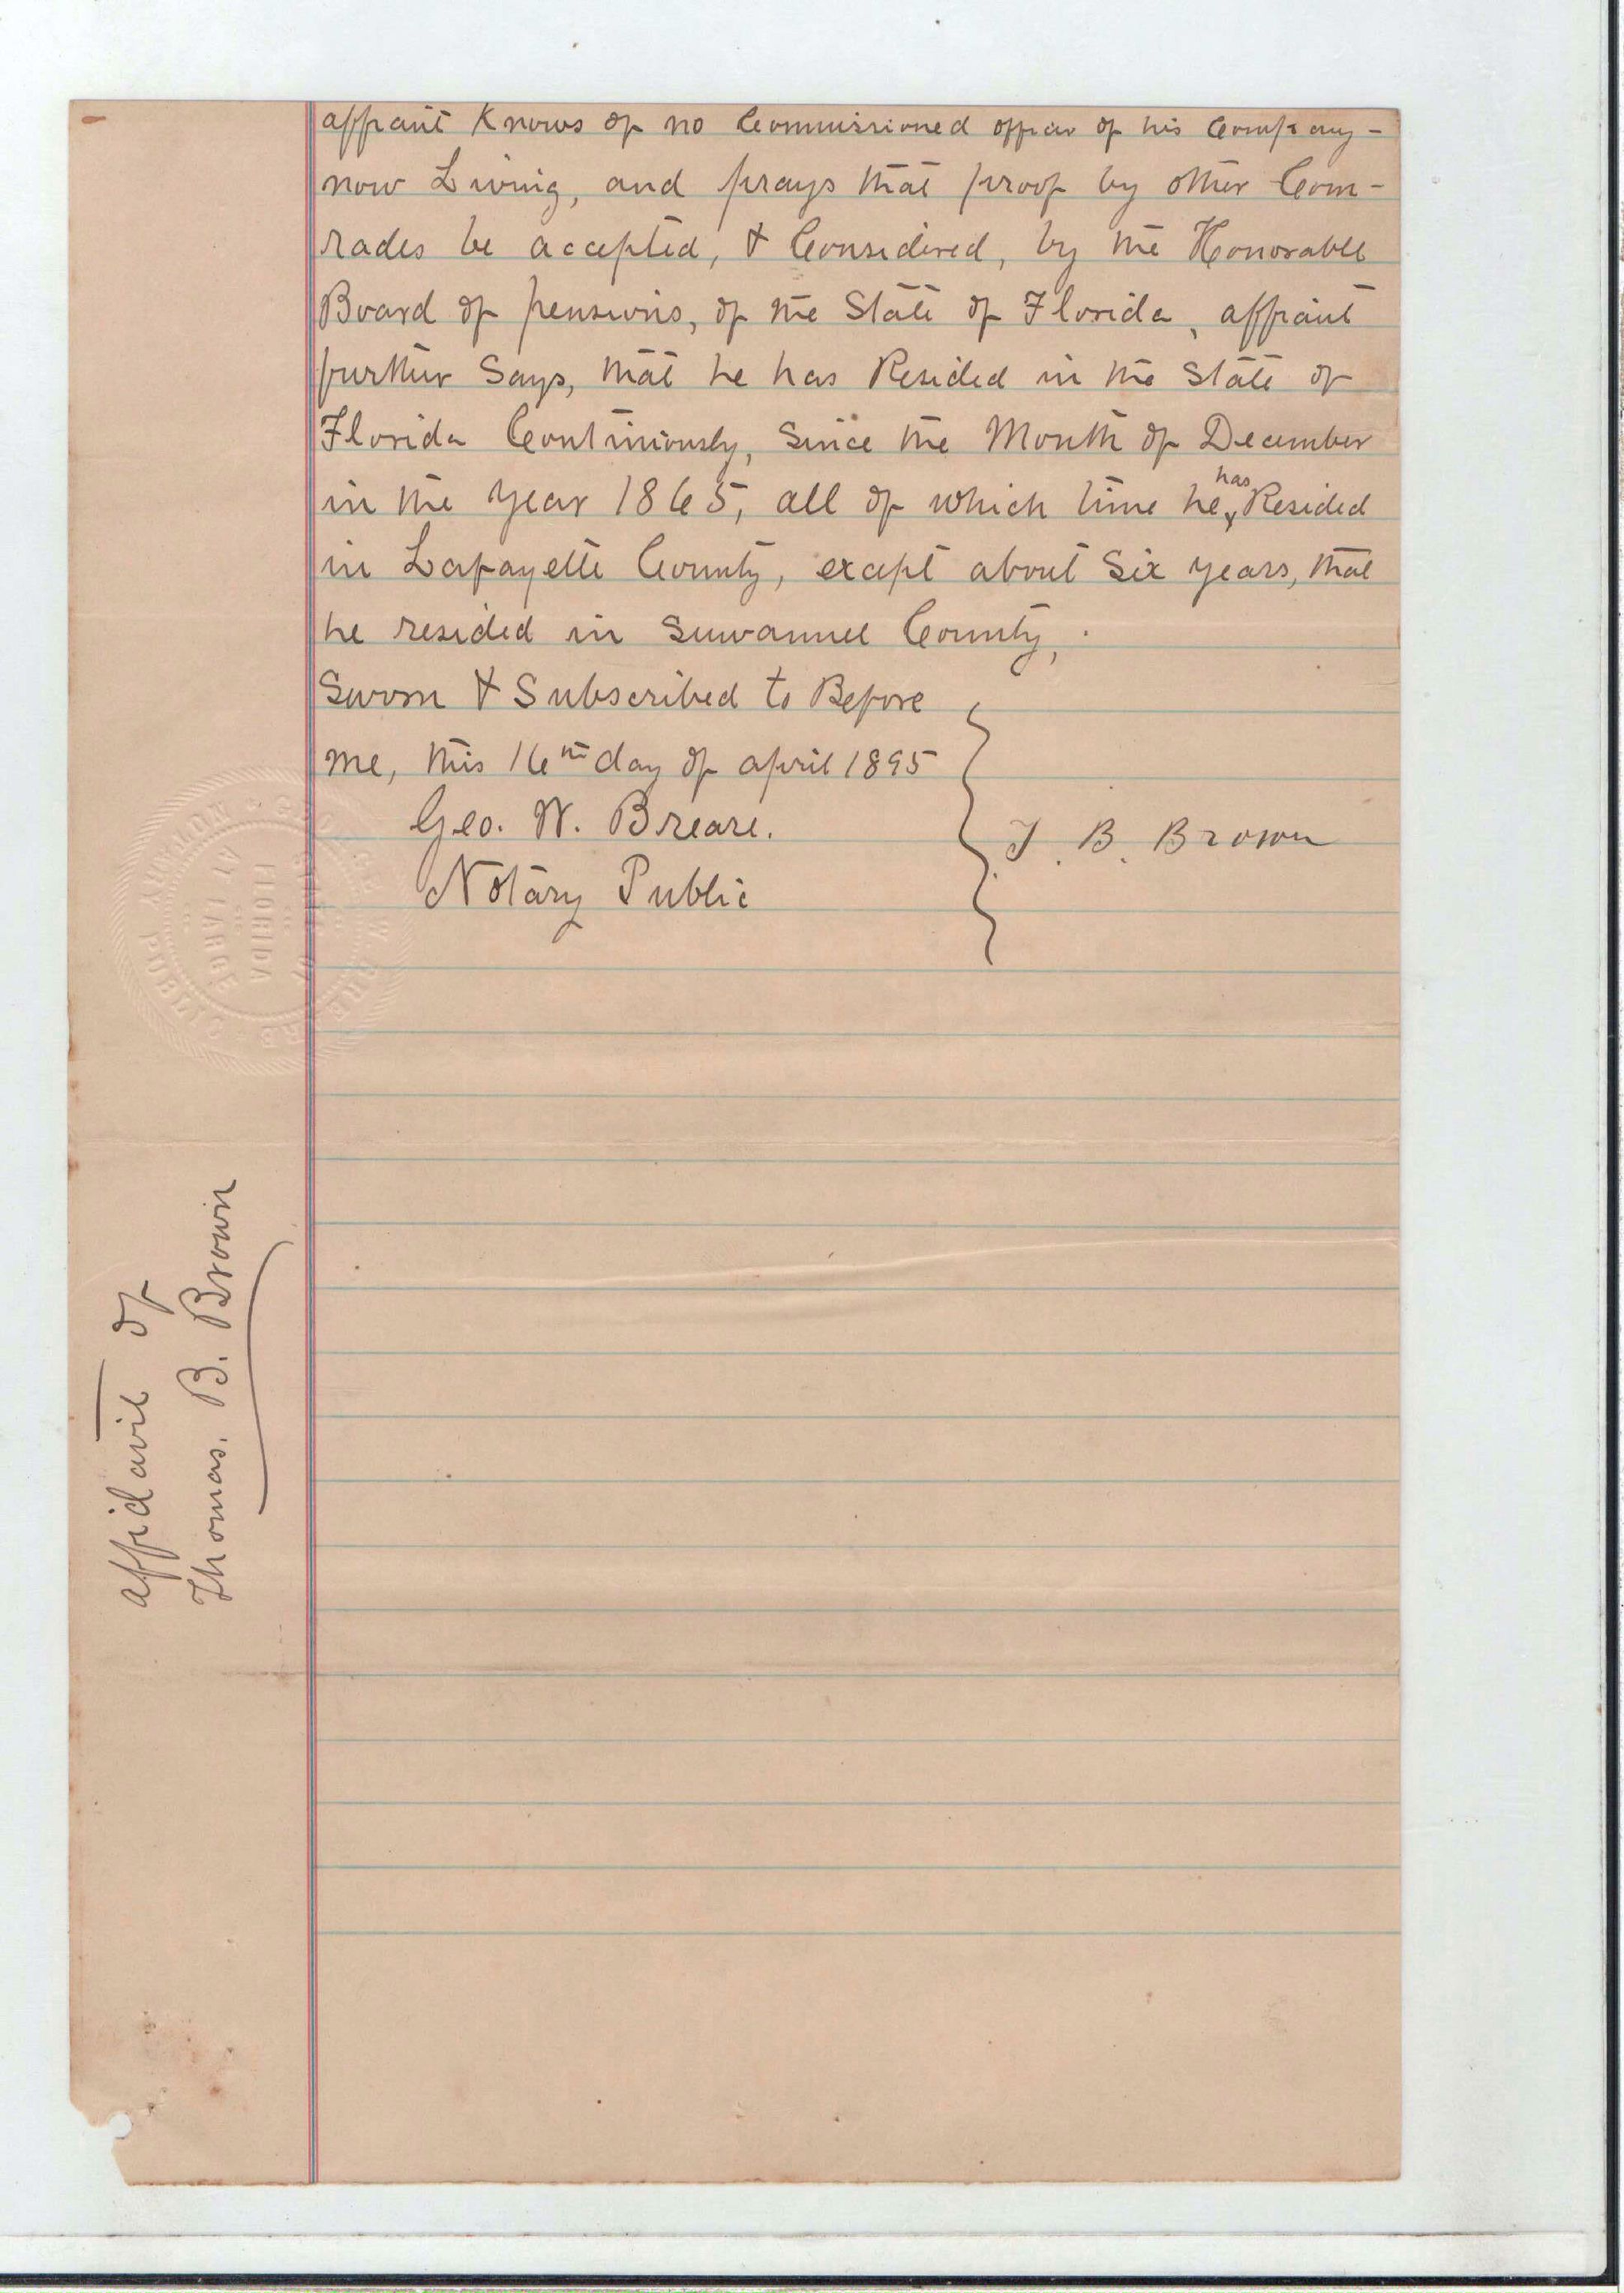 affiant Knows of no Commissioned officer of his Company -
now Living, and prays that proof by other Com-
rades be accepted, & Considered, by the Honorable
Board of pensions, of the State of Florida, affiant
further Says, that he has Resided in the State of
Florida Continiously, Since the Month of December
in the year 1865, all of which time he has Resided
in Lafayette County, except about Six years, that
he resided in Suwannee County,
Sworn & Subscribed to Before
me, this 16th day of april 1895
Geo. W. Breare.
Notary Public
T. B. Brown
NOTARY PUBLIC
AT LARGE
FLORIDA
affidavit of
Thomas. B. Brown